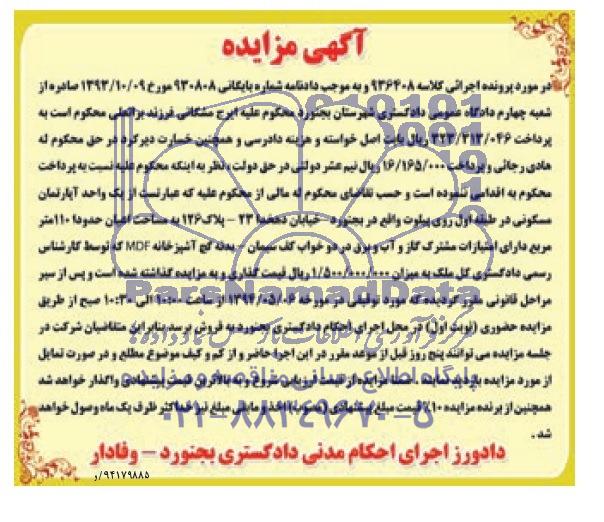 آگهی مزایده
در مورد پرونده اجرائی کلاسه ۹۳۶۴۰۸ و به موجب دادنامه شماره بایگانی ۹۳۰۸۰۸ مورخ ۱۳۹۳/۱۰/۰۹ صادره از
شعبه چهارم دادگاه عمومی دادگستری شهرستان بجنورد محکوم علیه ایرج مشکانی فرزند براتعلی محکوم است به
پرداخت ۳۲۳/۳۱۳/۰۴۶ ریال بابت اصل خواسته و هزینه دادرسی و همچنین خسارت دیرکرد در حق محکوم له
هادی رجائی و پرداخت ۱۶/۱۶۵/۰۰۰ ریال نیم عشر دولتی در حق دولت ، نظر به اینکه محکوم علیه نسبت به پرداخت
محکوم به اقدامی ننموده است و حسب تقاضای محکوم له مالی از محکوم علیه که عبارتست از یک واحد آپارتمان
مسکونی در طبقه اول روی پیلوت واقع در بجنورد – خیابان دهخدا ۲۳ – پلاک ۱۲۶ به مساحت اعیان حدودا ۱۱۰ متر
مربع دارای امتیازات مشترک گاز و آب و برق در دو خواب کف سیمان – بدنه گچ آشپزخانه MDF که توسط کارشناس
رسمی دادگستری کل ملک به میزان ۱/۵۰۰/۰۰۰/۰۰۰ ریال قیمت گذاری و به مزایده گذاشته شده است و پس از سیر
مراحل قانونی مقرر گردیده که مورد توقیفی در مورخه ۱۳۹۴/۰۵/۰۶ از ساعت ۱۰:۰۰ الی ۱۰:۳۰ صبح از طریق
مزایده حضوری (نوبت اول) در محل اجرای احکام دادگستری بجنورد به فروش برسد بنابراین متقاضیان شرکت در
جلسه مزایده می توانند پنج روز قبل از موعد مقرر در این اجرا حاضر و از کم و کیف موضوع مطلع و در صورت تمایل
از مورد مزایده بازدید نمایند . جلسه مزایده از قیمت ارزیابی شروع و به بالاترین قیمت پیشنهادی واگذار خواهد شد
همچنین از برنده مزایده ۱۰٪ قیمت مبلغ پیشنهادی اخذ و مابقی مبلغ نیز حداکثر ظرف یک ماه وصول خواهد
شد .
دادورز اجرای احکام مدنی دادگستری بجنورد – وفادار
۹۴۱۷۹۸۸۵/و
ParsNamadData
پایگاه اطلاع رسانی مناقصه و مزایده
۰۲۱-۸۸۳۴۹۶۷۰-۵